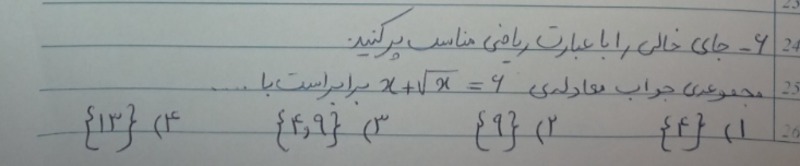 ۶- جای خالی را با عبارت ریاضی مناسب پر کنید.
مجموعه‌ی جواب معادله‌ی x+√x = ۶ برابر است با .....
۱) {۴} ۲) {۹} ۳) {۴,۹} ۴) {۱۳}